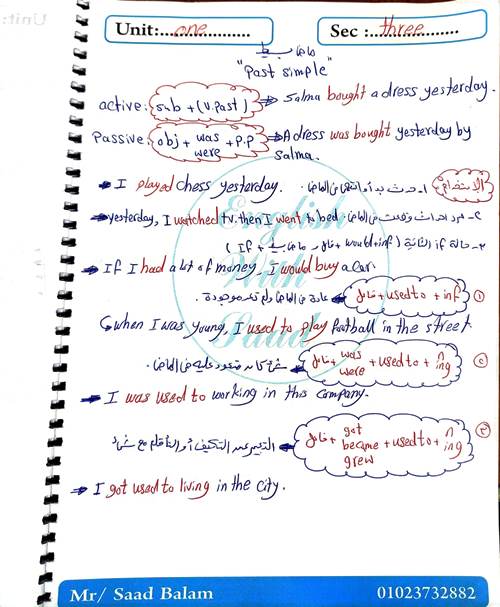 Unit:...one...................
Sec :...three............
ماضى بسيط
"Past simple"
active: sub + (V.past) → Salma bought a dress yesterday.
Passive: obj + was were + P.P → A dress was bought yesterday by
Salma.
الاستخدام
→ I played chess yesterday. ١- حدث بدأ وانتهى فى الماضى.
→ yesterday, I watched tv. then I went to bed. ٢- سرد احداث وقعت فى الماضى.
٣- حالة if الثانية ( If + ماضى بسيط , فاعل + would + inf )
→ If I had a lot of money, I would buy a car.
① فاعل + used to + inf → عادة فى الماضى ولم تعد موجودة.
when I was young, I used to play football in the street.
② فاعل + was were + used to + n ing → شئ كان متعود عليه فى الماضى.
→ I was used to working in this company.
③ فاعل + got became grew + used to + n ing → التعبير عن التكيف أو التأقلم مع شئ
→ I got used to living in the city.
English
With
Saad
Mr/ Saad Balam
01023732882